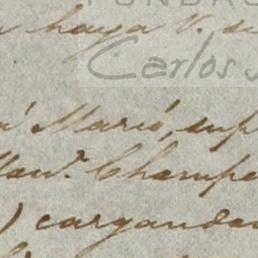 FUNDAC
haya V. su
Carlos
Marió, sup
Man.l Champe
) cargandan